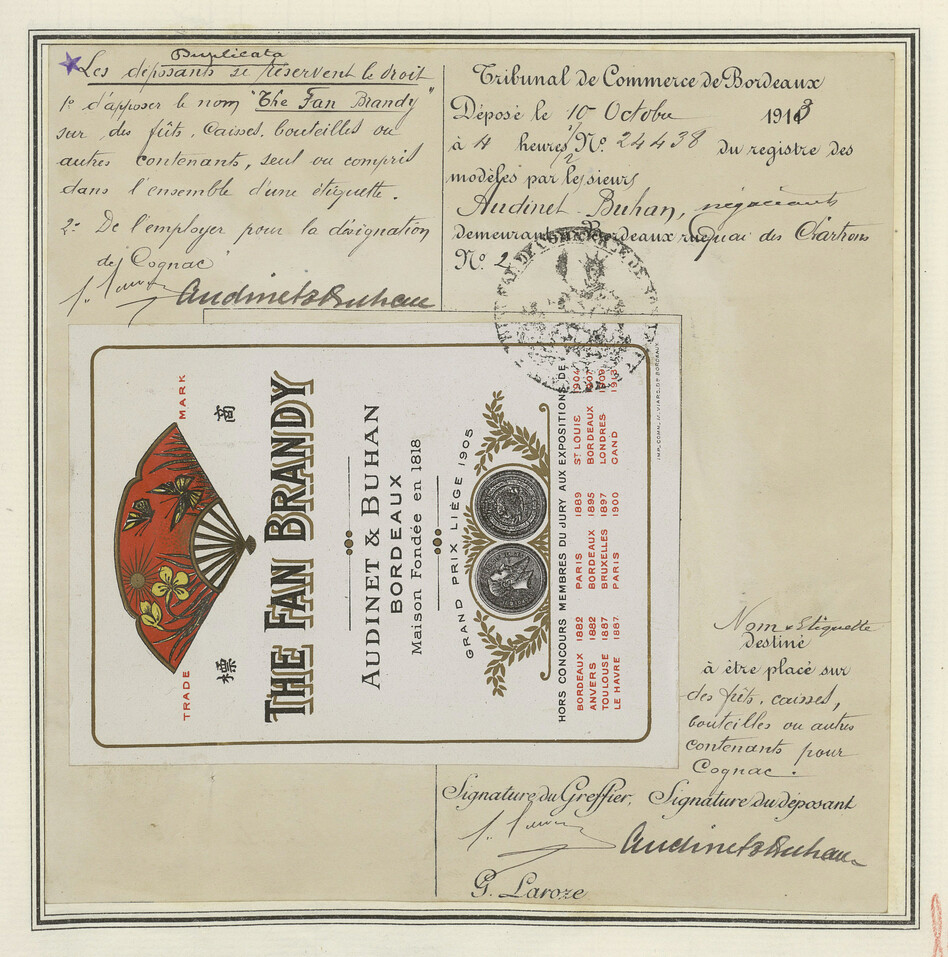 Duplicata
Les déposants se réservent le droit
1º d'apposer le nom "The Fan Brandy"
sur des fûts, caisses, bouteilles ou
autres contenants, seul ou compris
dans l'ensemble d'une étiquette.
2º De l'employer pour la désignation
de Cognac
Audinet & Buhan
Tribunal de Commerce de Bordeaux
Déposé le 10 Octobre 1913
à 4 heures Nº 24438 du registre des
modèles par les sieurs
Audinet Buhan, négociants
demeurant à Bordeaux rue Quai des Chartrons
Nº 2
TRADE MARK
標 商
THE FAN BRANDY
AUDINET & BUHAN
BORDEAUX
Maison Fondée en 1818
GRAND PRIX LIÉGE 1905
HORS CONCOURS MEMBRES DU JURY AUX EXPOSITIONS DE
BORDEAUX 1882 PARIS 1889 ST LOUIS 1904
ANVERS 1882 BORDEAUX 1895 BORDEAUX 1907
TOULOUSE 1887 BRUXELLES 1897 LONDRES 1909
LE HAVRE 1887 PARIS 1900 GAND 1913
Nom & Etiquette
destiné
à être placé sur
des fûts, caisses,
bouteilles ou autres
contenants pour
Cognac.
Signature du Greffier, Signature du déposant
Audinet & Buhan
G. Laroze